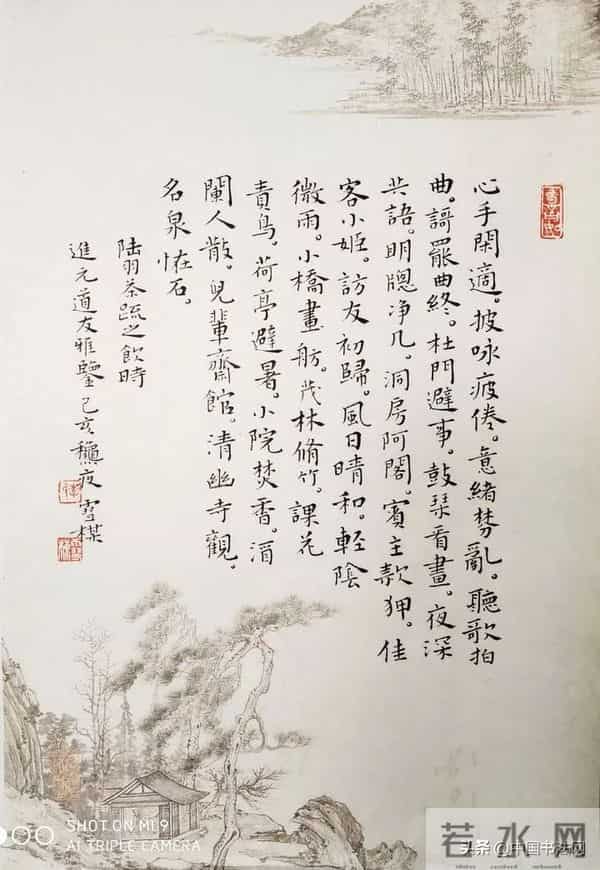 心手閑適。披咏疲倦。意緒棼亂。聽歌拍
曲。謌罷曲終。杜門避事。鼓琹看畫。夜深
共語。明牕净几。洞房阿閣。賓主款狎。佳
客小姬。訪友初歸。風日晴和。輕陰
微雨。小橋畫舫。茂林脩竹。課花
責鳥。荷亭避暑。小院焚香。酒
闌人散。兒輩齋館。清幽寺觀。
名泉恠石。
陸羽茶疏之飲時
進元道友雅鑒己亥龝夜雪棋
SHOT ON MI 9
AI TRIPLE CAMERA
若水网
头条@中国书法网